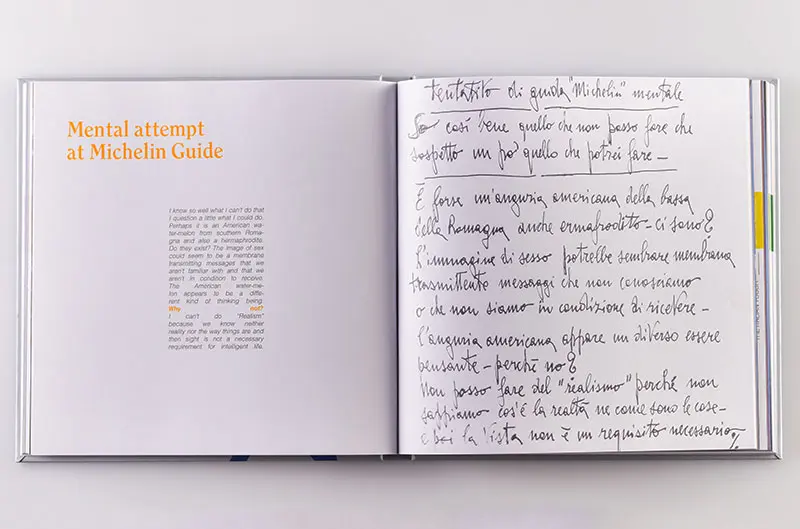 Mental attempt
at Michelin Guide
I know so well what I can't do that
I question a little what I could do.
Perhaps it is an American wa-
ter-melon from southern Roma-
gna and also a hermaphrodite.
Do they exist? The image of sex
could seem to be a membrane
transmitting messages that we
aren't familiar with and that we
aren't in condition to receive.
The American water-me-
lon appears to be a diffe-
rent kind of thinking being.
Why not?
I can't do "Realism"
because we know neither
reality nor the way things are and
then sight is not a necessary
requirement for intelligent life.
tentativo di guida "Michelin" mentale
So così bene quello che non posso fare che
sospetto un po' quello che potrei fare —
È forse un'anguria americana della bassa
della Romagna anche ermafrodito - ci sono?
L'immagine di sesso potrebbe sembrare membrana
trasmittente messaggi che non conosciamo
o che non siamo in condizione di ricevere -
l'anguria americana appare un diverso essere
pensante - perchè no?
Non posso fare del "realismo" perchè non
sappiamo cos'è la realtà ne come sono le cose -
e poi la vista non è un requisito necessario